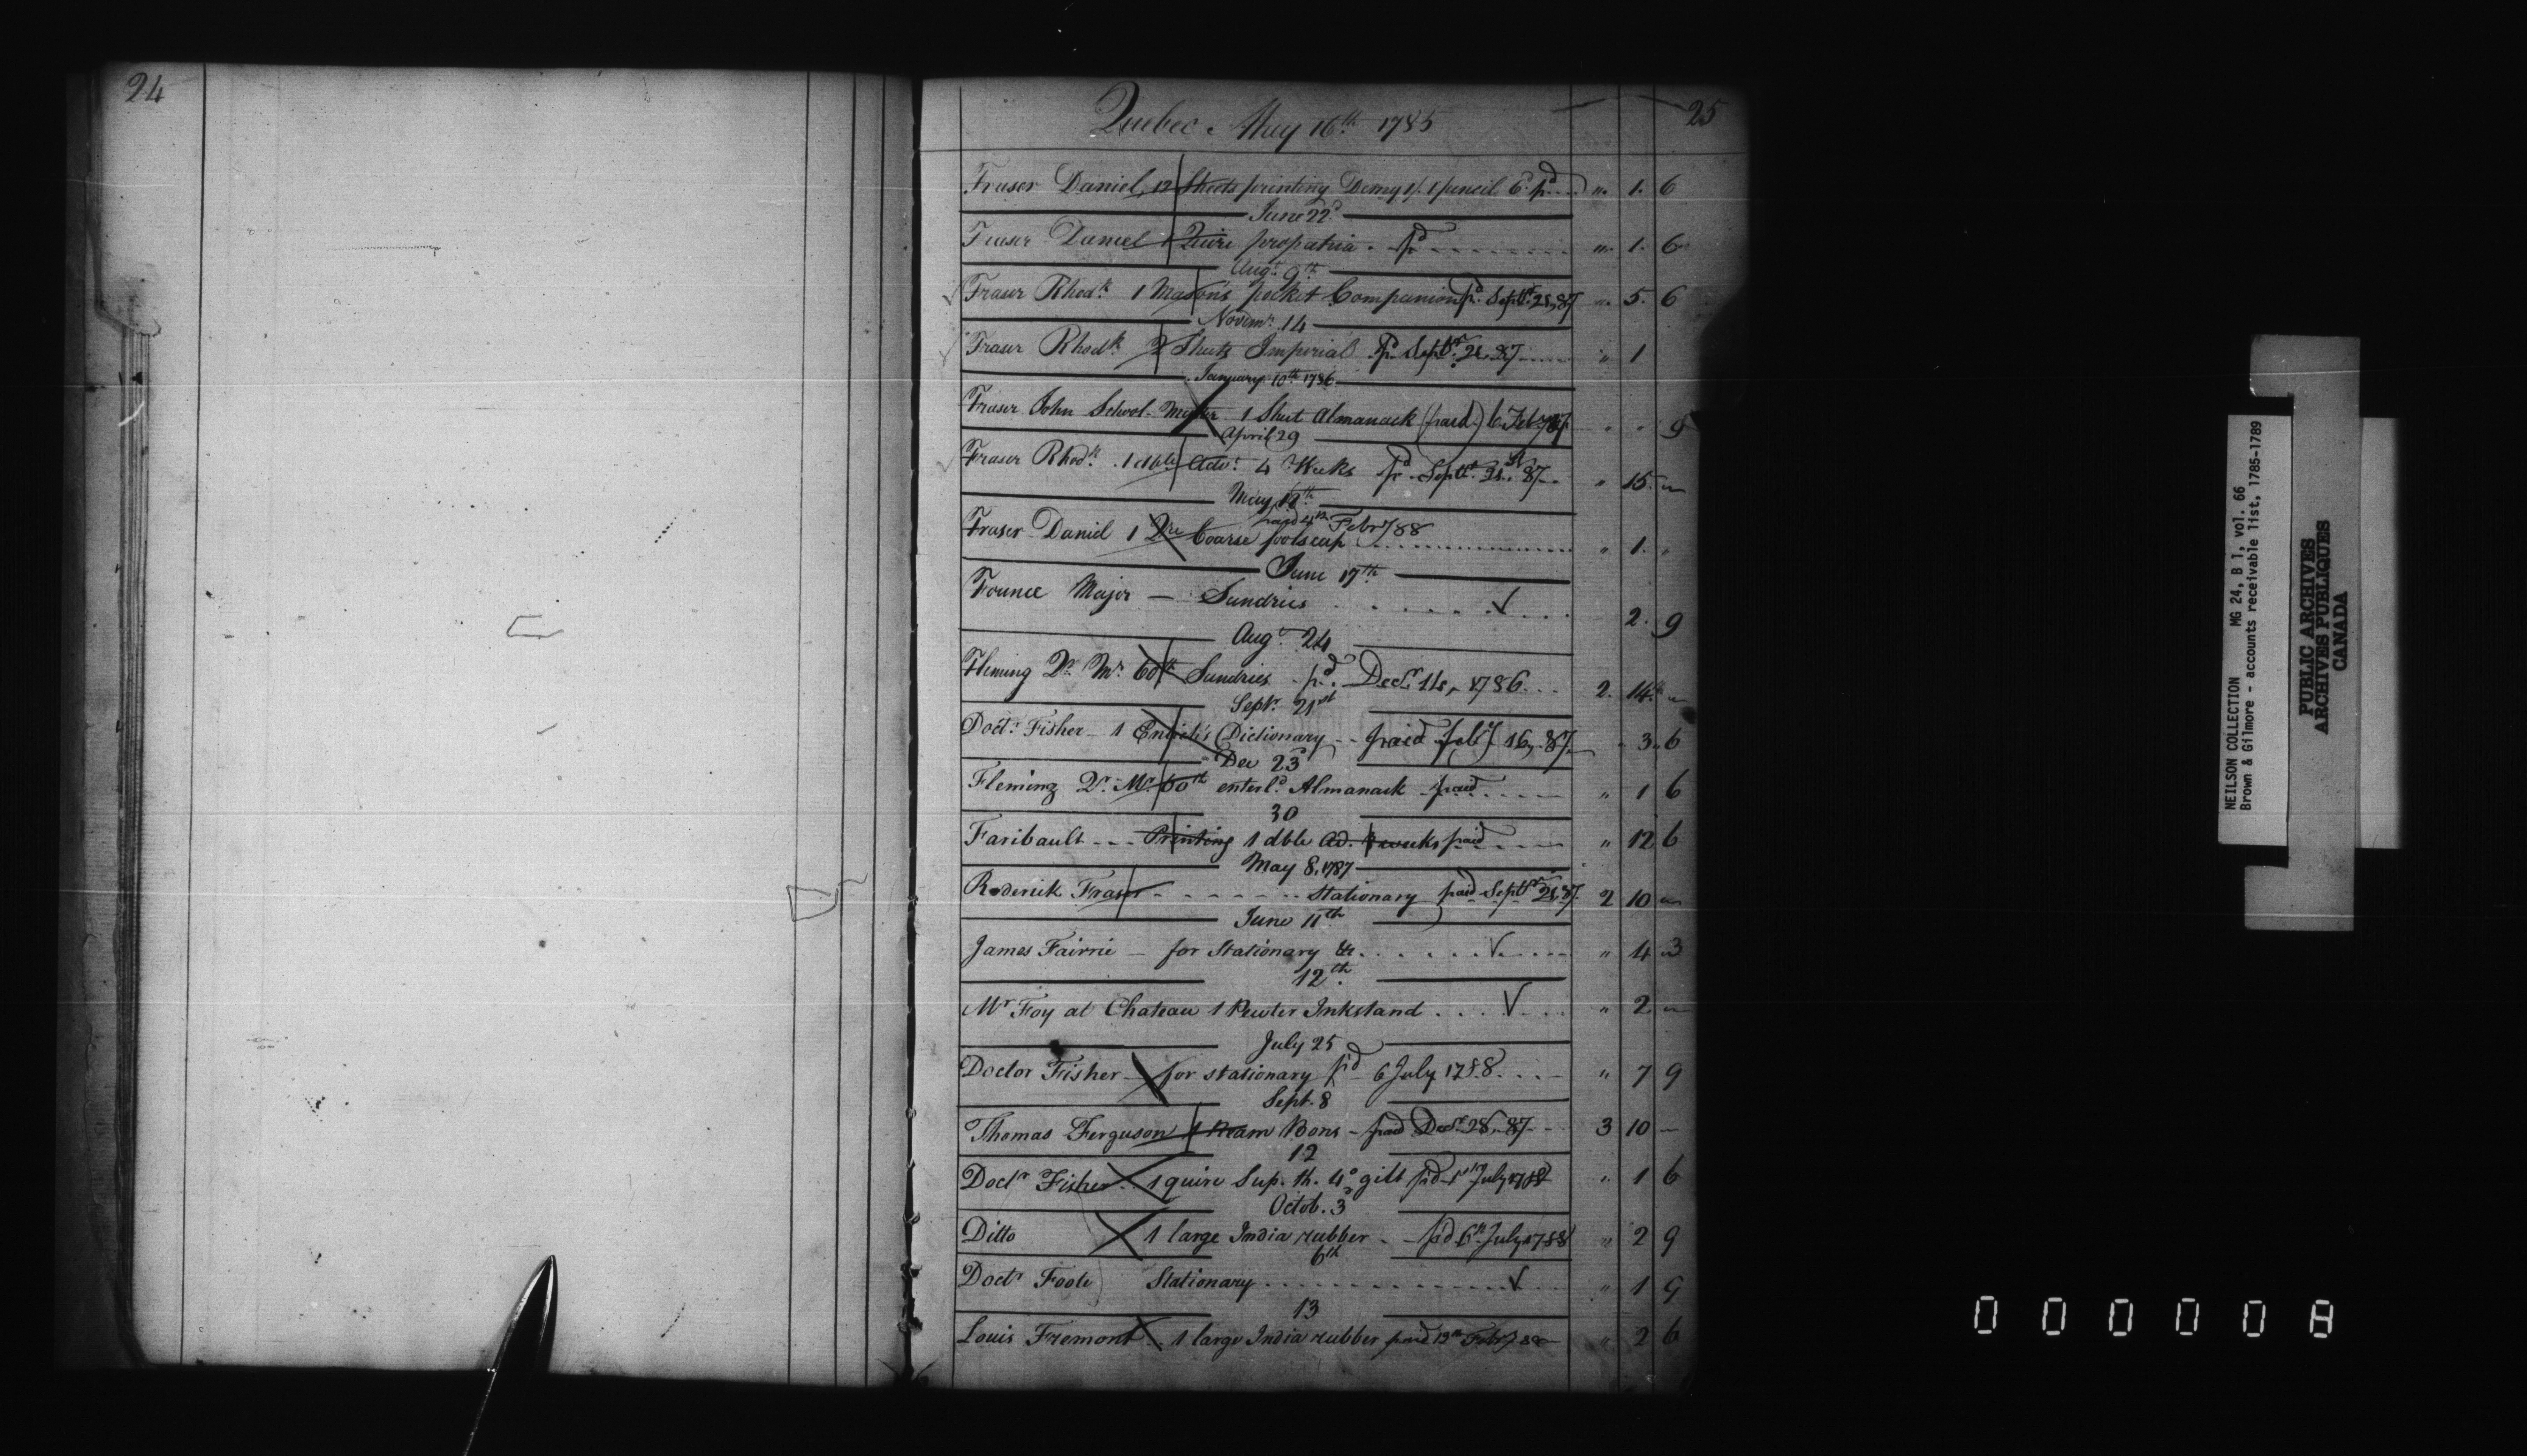 24
25
Quebec. May 16th 1785
Fraser Daniel, 12 Sheets printing Demy 1/. 1 pencil 6d pd " 1. 6
June 22d
Fraser Daniel 1 Quire propatria. pd " 1. 6
Augt. 9th
Fraser Rhodk. 1 Mason's pocket Companion pd. Septr. 28, 87 " 5. 6
Novemr. 14
Fraser Rhodk. 2 Sheets Imperial pd Septr. 28, 87 " 1
January 10th 1786
Fraser John School-Master 1 Sheet Almanack (paid.) 6 Feby " " 9
April 29
Fraser Rhodk. 1 dble Advt. 4 Weeks pd. Septr. 28, 87 " 15. "
May
paid 4th Feby 88
Fraser Daniel 1 Qre Coarse foolscap " 1. "
June 17th
Major — Sundries 2. 9
Augt. 24
Fleming Qr. Mr. 60th Sundries pd. Decr. 1786 2. 14. "
Septr. 21st
Doctr. Fisher - 1 Entick's Dictionary - - paid feby 16, 87 " 3. 6
Dec 23d
Fleming Qr. Mr. 60th enterld. Almanack paid " 1 6
30
Faribault - - - Printing 1 dble Ad. weeks paid " 12 6
May 8. 1787
Roderick Fraser - - - Stationary paid Septr. 28, 87. 2 10 "
June 11th
James Fairrie — for Stationary &c. " 4 3
12th.
Mr Foy at Chateau 1 Pewter Inkstand " 2 "
July 25
Doctor Fisher - for stationary p'd 6 July 1788 " 7 9
Sept. 8
Thomas Ferguson 1 Ream Bons - paid Decr. 28, 87 3 10 —
12
Doctr Fisher 1 quire Sup. th. 4o gilt p'd July 1788 " 1 6
Octob. 3d
Ditto 1 large India rubber - p'd 6th July 1788 " 2 9
6th
Doctr Foote Stationary " 1 9
13
Louis Fremont 1 large India rubber paid 13th Feby 88 " 2 6
NEILSON COLLECTION MG 24, B 1, vol. 66
Brown & Gilmore - accounts receivable list, 1785-1789
PUBLIC ARCHIVES
ARCHIVES PUBLIQUES
CANADA
000008